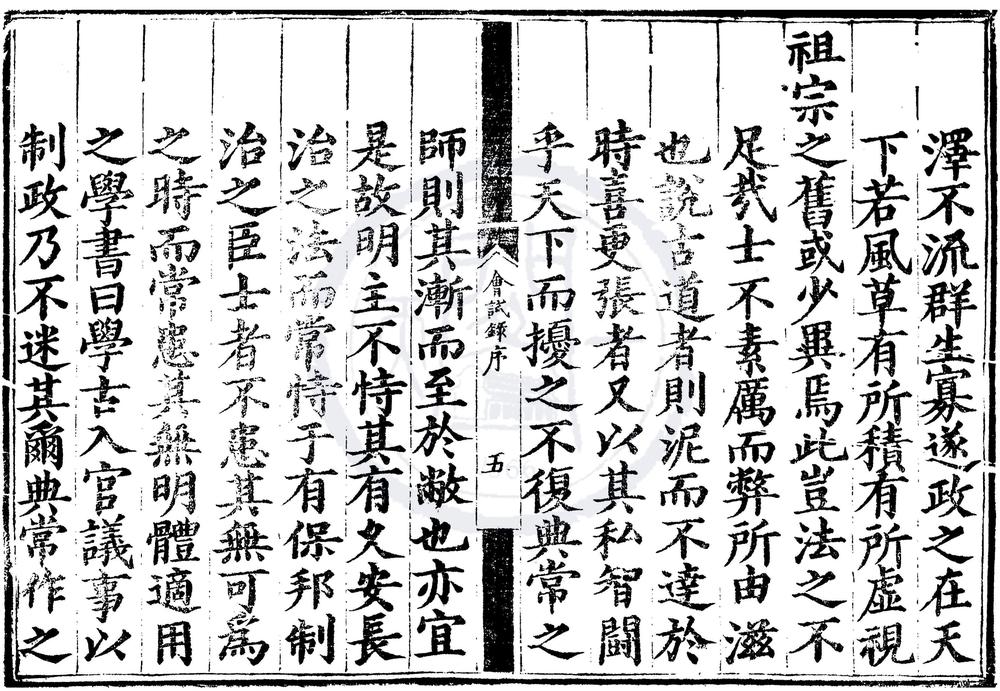 澤不流群生寡遂政之在天
下若風草有所積有所虛視
祖宗之舊或少異焉此豈法之不
足㢤士不素厲而弊所由滋
也說古道者則泥而不達於
時喜更張者又以其私智鬪
乎天下而擾之不復典常之
會試錄序
五
師則其漸而至於敝也亦宜
是故明主不恃其有乆安長
治之法而常恃于有保邦制
治之臣士者不患其無可爲
之時而常患其無明體適用
之學書曰學古入官議事以
制政乃不迷其爾典常作之